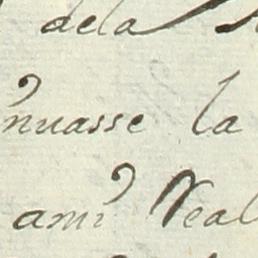 dela
nuasse la
ami Real